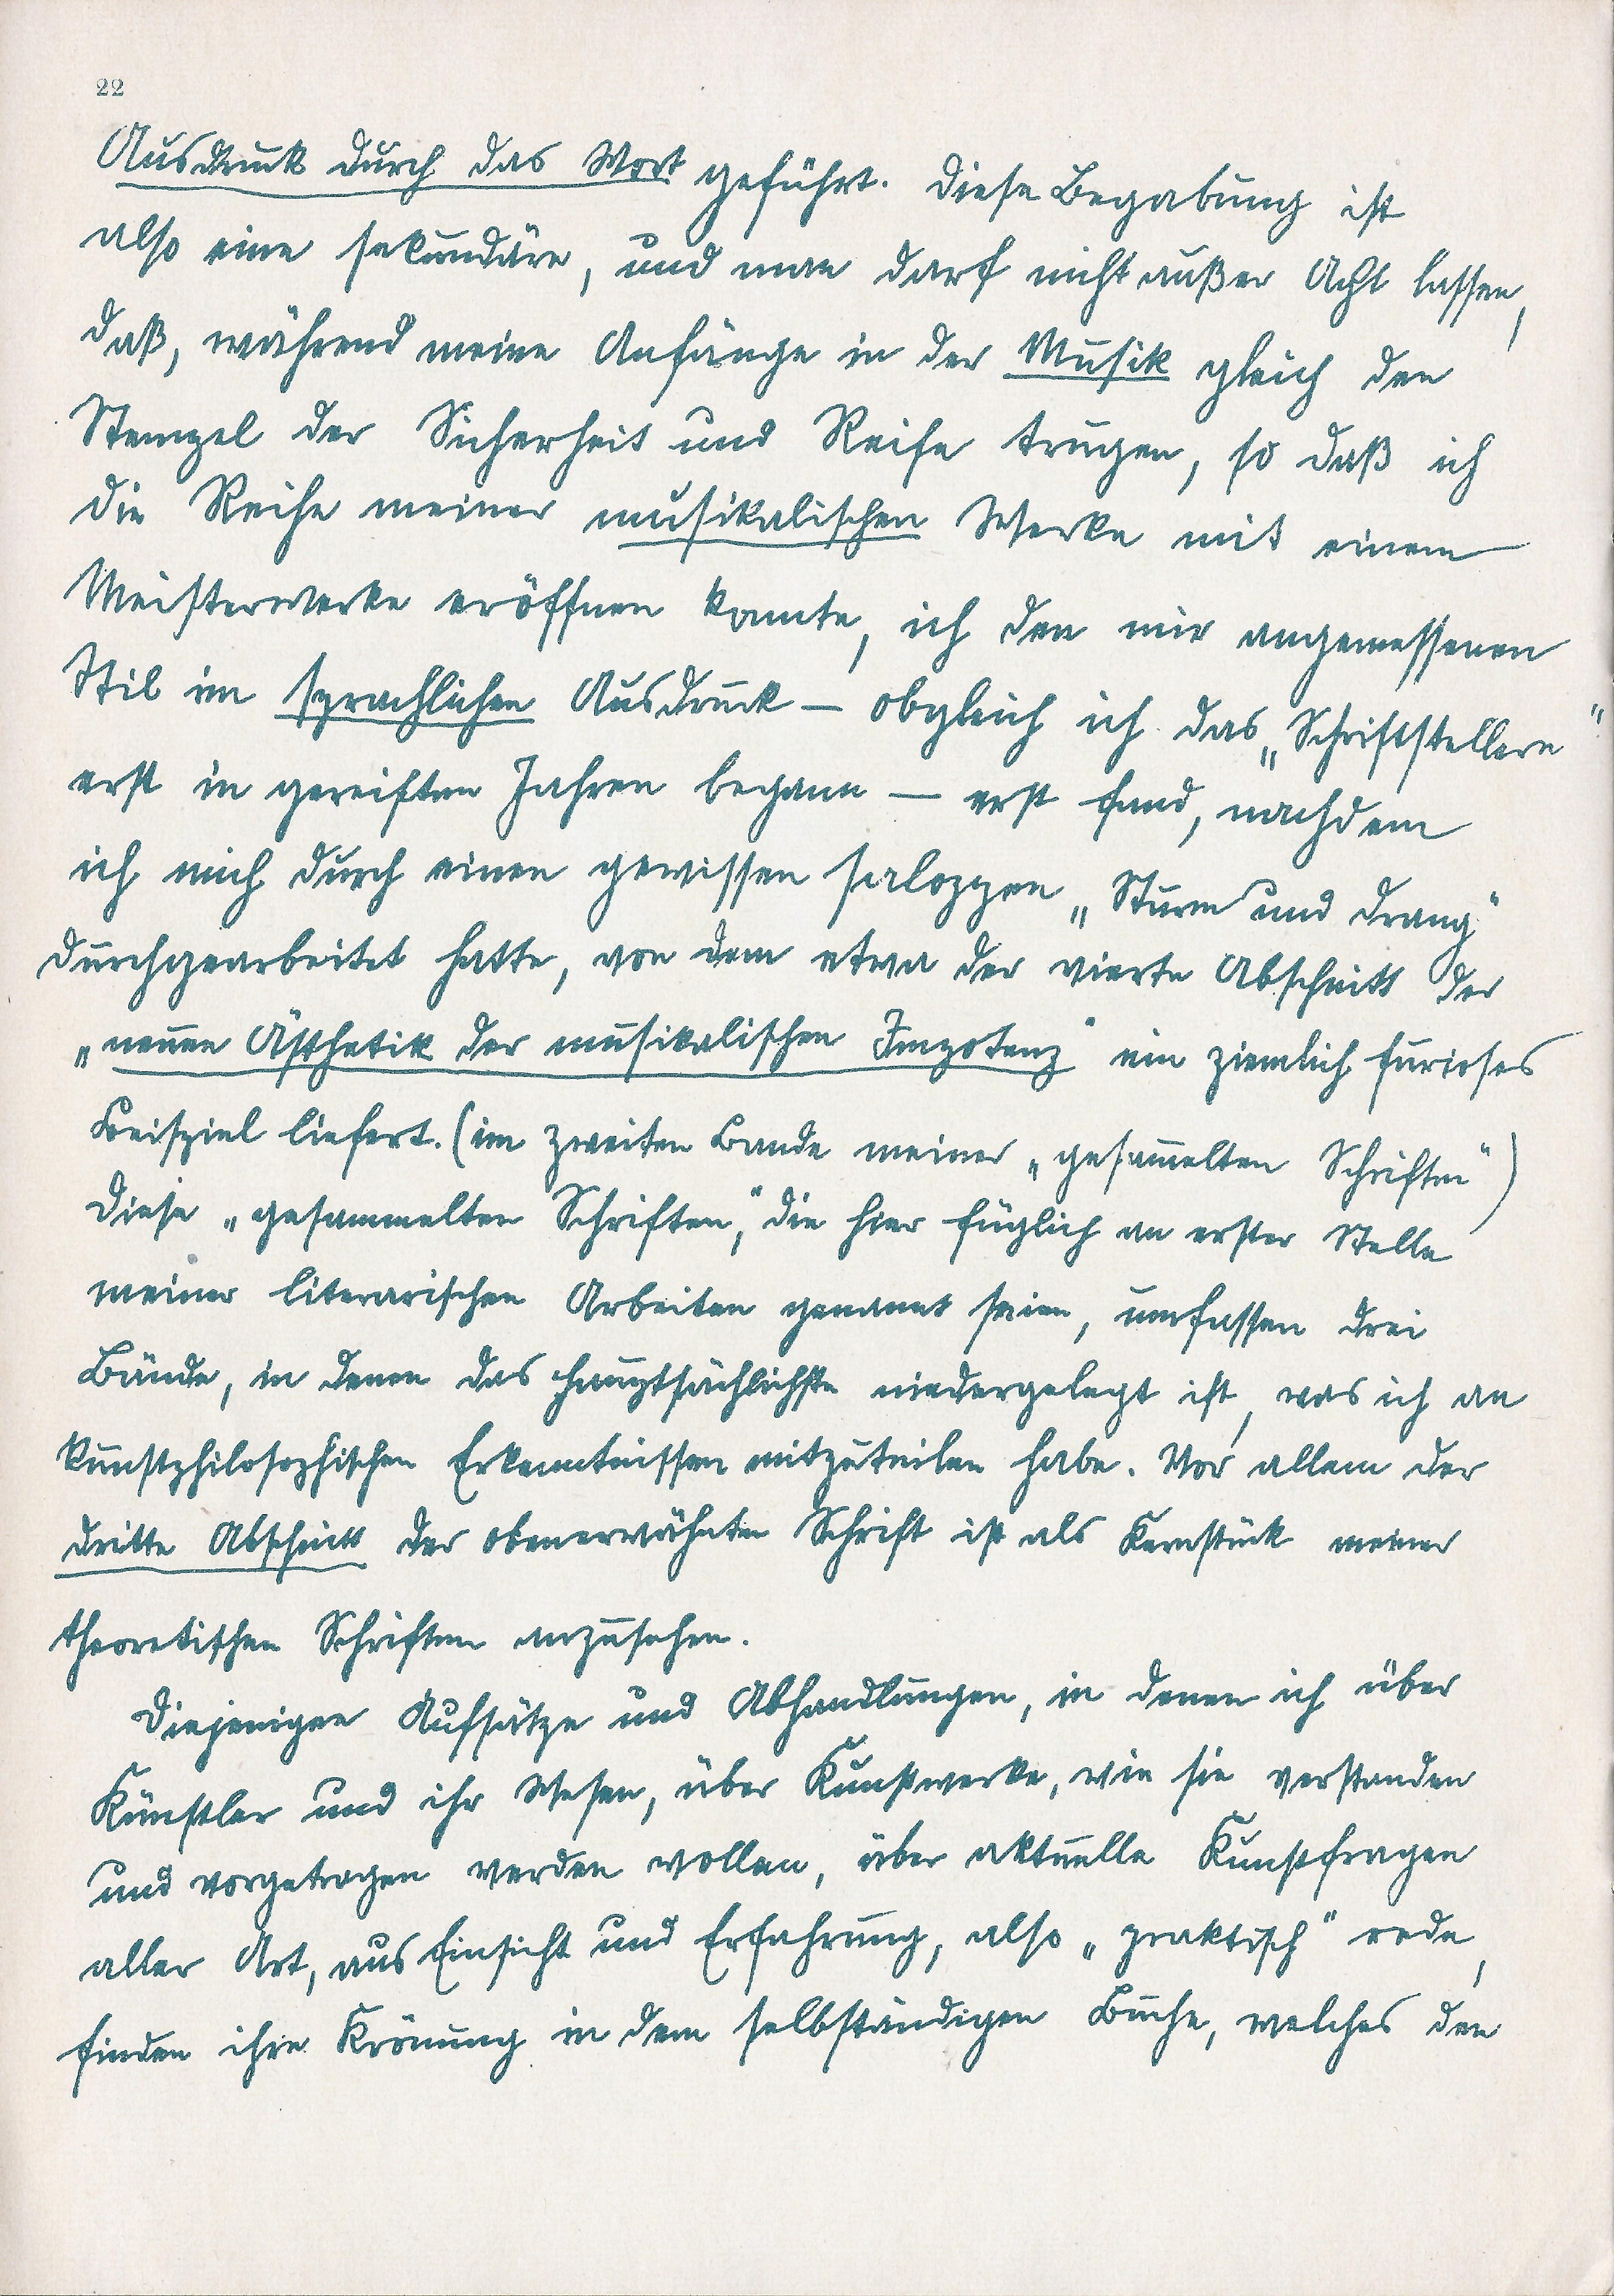 22
Ausdruck durch das Wort geführt. Diese Begabung ist
also eine sekundäre, und man darf nicht außer Acht lassen,
daß, während meine Anfänge in der Musik gleich den
Stempel der Sicherheit und Reife trugen, so daß ich
die Reihe meiner musikalischen Werke mit einem
Meisterwerke eröffnen konnte, ich den mir angemessenen
Stil im sprachlichen Ausdruck — obgleich ich das „Schriftstellern“
erst in gereiften Jahren begann — erst fand, nachdem
ich mich durch einen gewissen saloppen „Sturm und Drang“
durchgearbeitet hatte, von dem etwa der vierte Abschnitt der
„neuen Ästhetik der musikalischen Impotenz“ ein ziemlich furioses
Beispiel liefert. (im zweiten Bande meiner „gesam̅elten Schriften“)
Diese „gesammelten Schriften,“ die hier füglich an erster Stelle
meiner literarischen Arbeiten genannt seien, umfassen drei
Bände, in denen das hauptsächlichste niedergelegt ist, was ich an
kunstphilosophischen Erkenntnissen mitzuteilen habe. Vor allem der
dritte Abschnitt der obenerwähnten Schrift ist als Kernstück meiner
theoretischen Schriften anzusehen.
Diejenigen Aufsätze und Abhandlungen, in denen ich über
Künstler und ihr Wesen, über Kunstwerke, wie sie verstanden
und vorgetragen werden wollen, über aktuelle Kunstfragen
aller Art, aus Einsicht und Erfahrung, also „praktisch“ rede,
finden ihre Krönung in dem selbständigen Buche, welches den